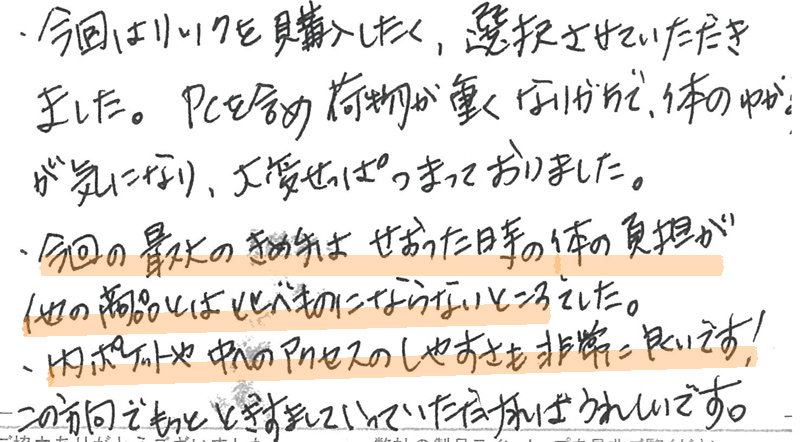 ・今回はリュックを購入したく、選択させていただき
ました。PCを含め荷物が重くなりがちで、体のゆが
が気になり、大変せっぱつまっておりました。
・今回の最大のきめ手は せおった時の体の負担が
他の商品とはくらべものにならないところでした。
・内ポケットや中へのアクセスのしやすさも非常に良いです!
この方向でもっととぎすましていっていただければうれしいです。